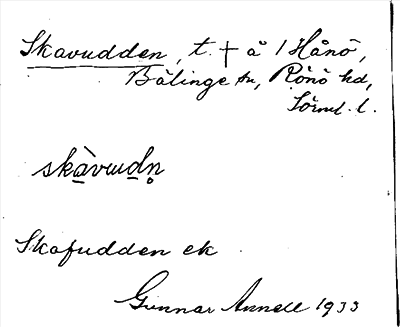 Skavudden, t. † å 1 Hånö,
Bälinge sn, Rönö hd,
Sörml. l.
skàvudn̥
Skafudden ek
Gunnar Annell 1933